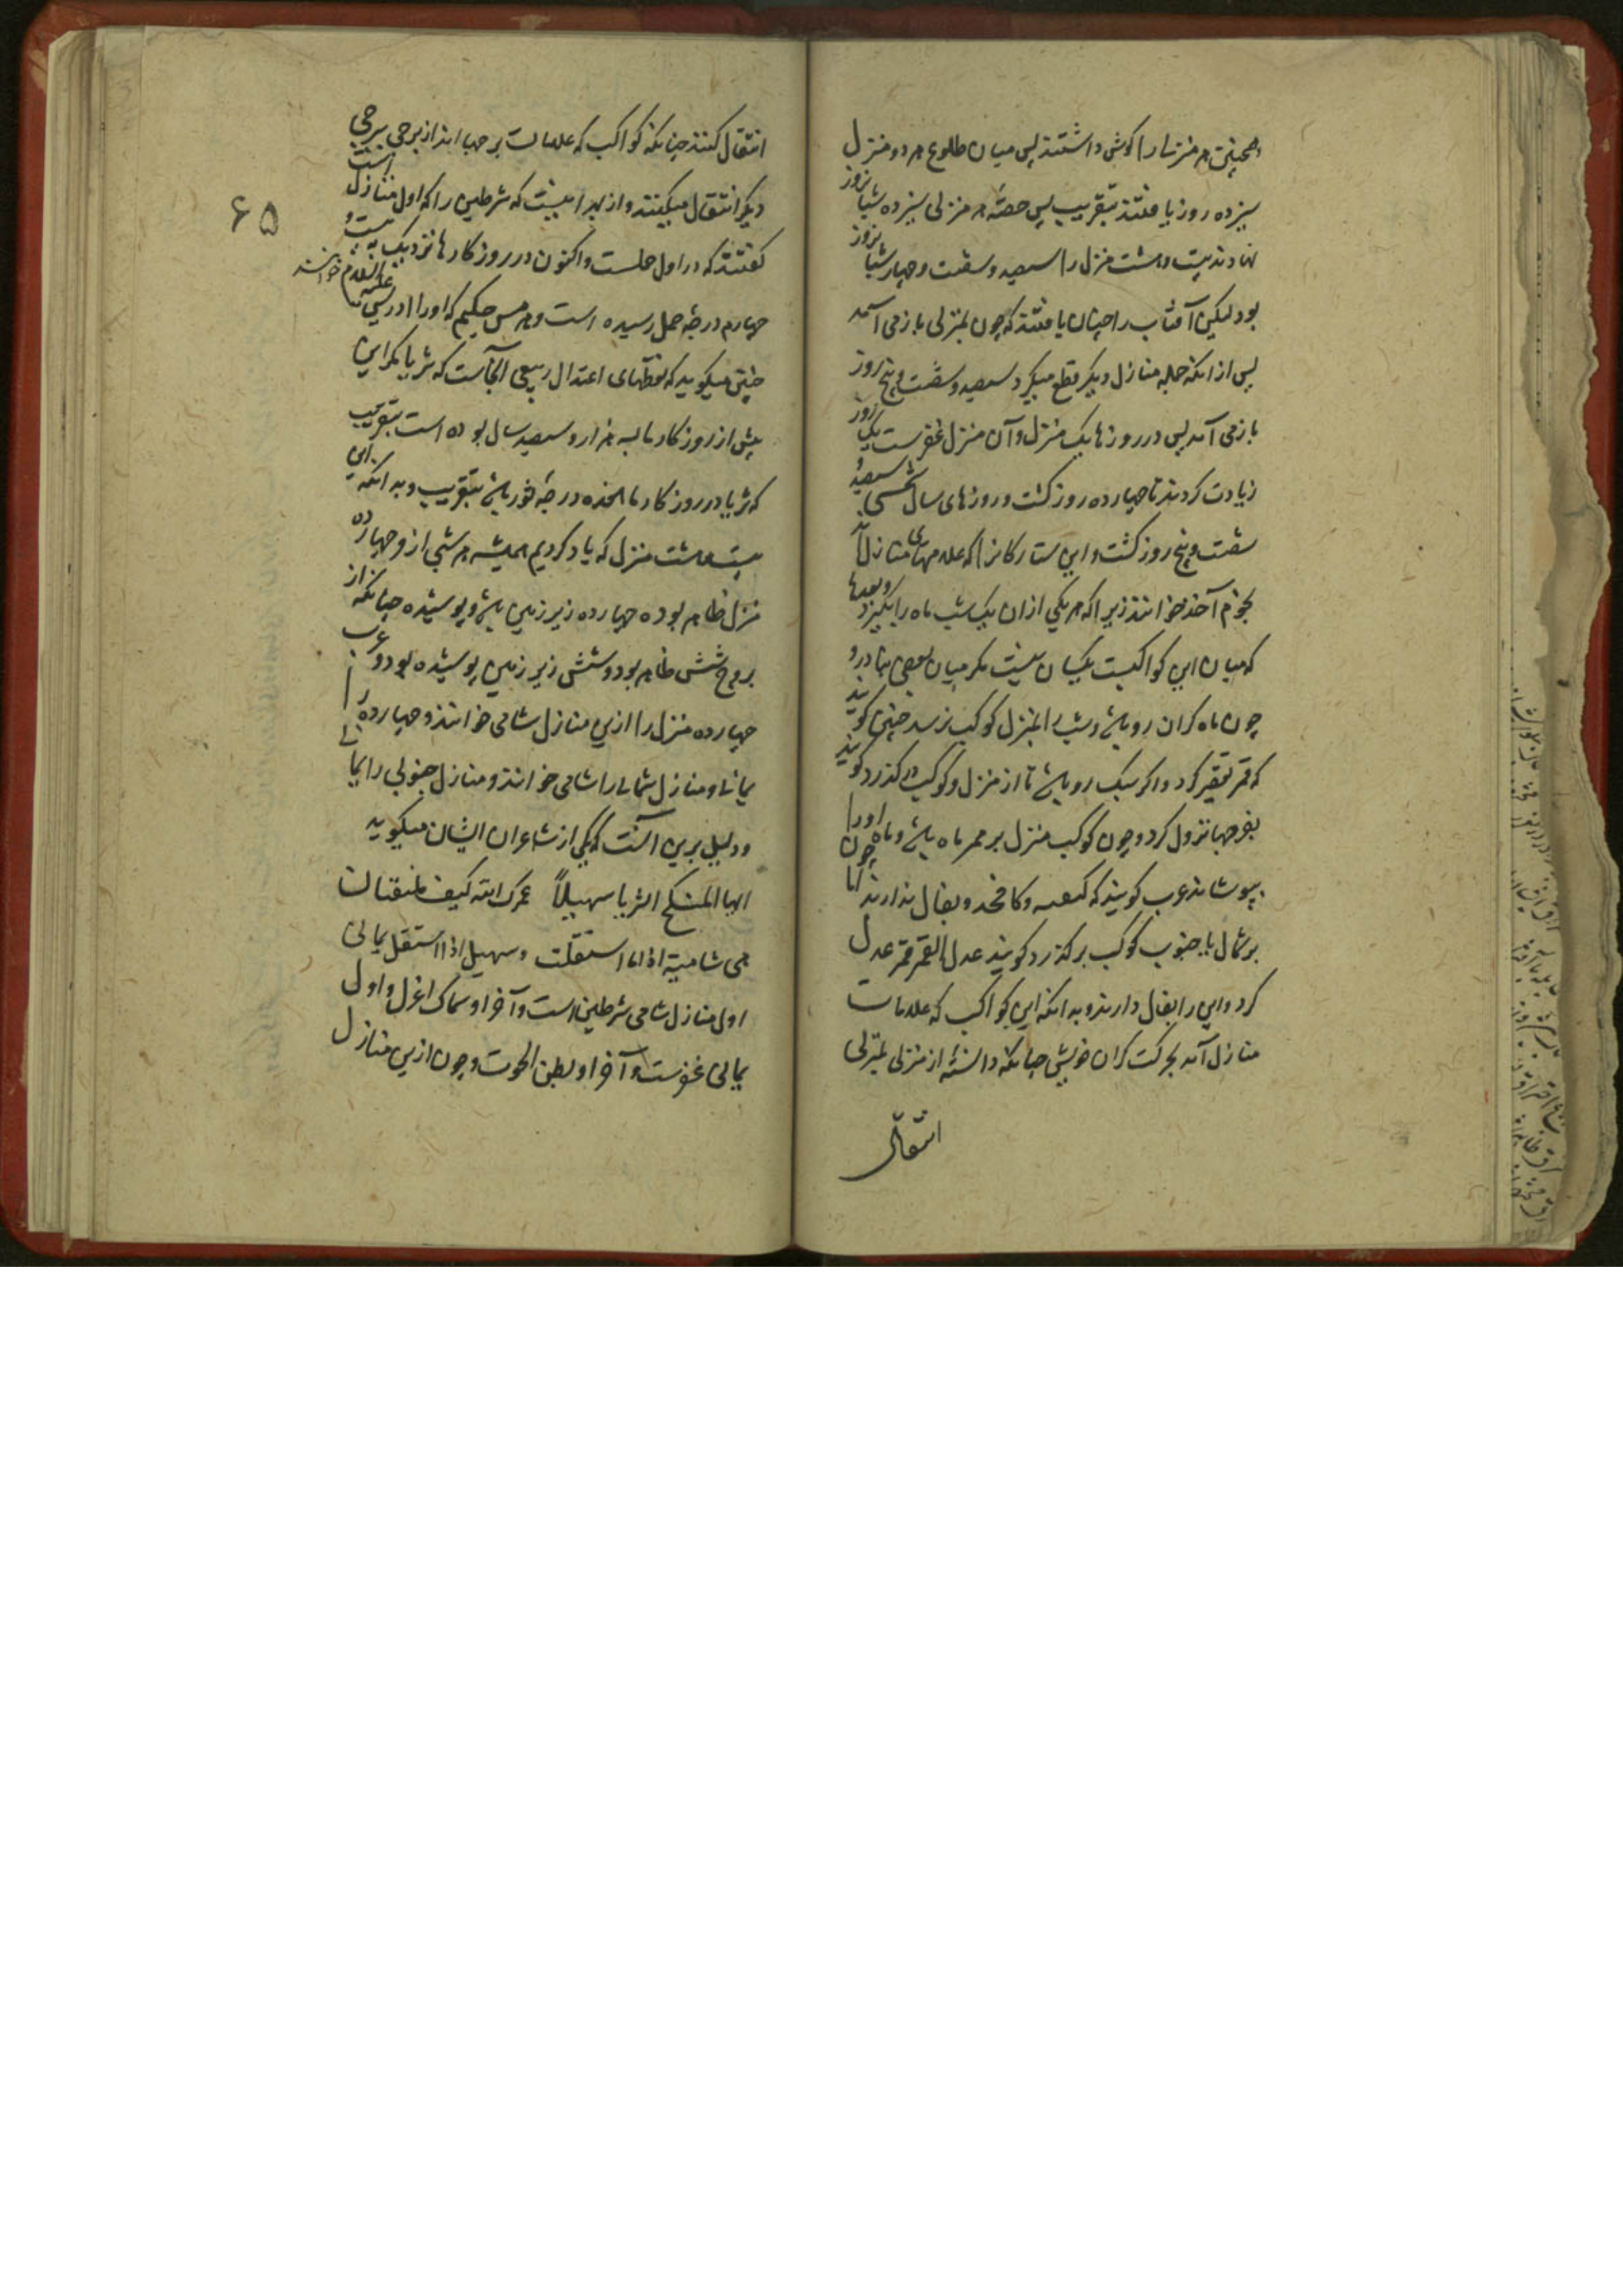 همچنین هر منزلی را گوش داشتند پس میان طلوع هر دو منزل
سیزده روز یافتند بتقریب پس حصهٔ هر منزلی سیزده شبانروز
نهادند بیست و هشت منزل را سیصد و شصت و چهار شبانروز
بود لیکن آفتاب را چنان یافتند که چون بمنزلی بازمی آمد
پس از آنکه جمله منازل دیگر قطع میکرد سیصد و شصت و پنج روز
بازمی آمد پس در روزها یک منزل و آن منزل غفرست یک روز
زیادت کردند تا چهارده روز گشت و روزهای سال شمسی سیصد و
شصت و پنج روز گشت و این ستارگانرا که علامتهای منازل اند
نجوم آخذ خوانند زیرا که هر یکی از آن یک شب ماه را بگیرد و بعدها
که میان این کواکبست یکسان نیست مگر میان بعضی بنادر و
چون ماه گران رو باشد و شب را بمنزل کوکب نرسد چنین گویند
که قمر تقصیر کرد و اگر سبک رو باشد تا از منزل و کوکب درگذرد گویند
بفرجها نزول کرد و چون کوکب منزل بر ممر ماه باشد و ماه او را
بپوشاند عرب گویند که و بفال ندارند اما چون
بر شمال یا جنوب کوکب برگذرد گویند عدل القمر قمر عدل
کرد و این را بفال دارند و بدانکه این کواکب که علامات
منازل آمد بحرکت گران خویش چنانکه دانسته از منزلی بمنزلی
انتقال
۶۵
انتقال کنند چنانکه کواکب که علامات برجها اند از برجی ببرجی
دیگر انتقال میکنند و از بهر اینست که شرطین را که اول منازل است
گفتند که در اول حملست و اکنون در روزگار ما نزدیک به بیست و
چهارم درجهٔ حمل رسیده است و هرمس حکیم که او را ادریس علیه السلام خوانند
چنین میگوید که نقطهای اعتدال ربیعی آنجاست که ثریا مگر این
پیش از روزگار ما بسه هزار و سیصد سال بوده است بتقریب
که ثریا در روزگار ما درجهٔ ثور باشد بتقریب و بدانکه این
بیست و هشت منزل که یاد کردیم همیشه هر شبی ازو چهارده
منزل ظاهر بود و چهارده زیر زمین باشد و پوشیده چنانکه از
بروج شش ظاهر بود و شش زیر زمین پوشیده بود و عرب
چهارده منزل را ازین منازل شامی خوانند و چهارده را
یمانی و منازل شمالی را شامی خوانند و منازل جنوبی را یمانی
و دلیل برین آنست که یکی از شاعران ایشان میگوید
ایها المنکح الثریا سهیلاً عمرک الله کیف یلتقیان
هی شامیة اذا ما استقلت و سهیل اذا استقل یمانی
اول منازل شامی شرطین است و آخر او سماک اعزل و اول
یمانی غفرست و آخر او بطن الحوت و چون ازین منازل